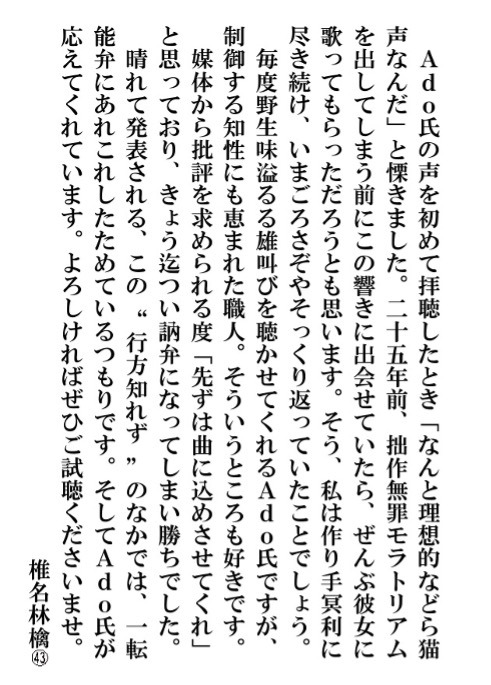 Ａｄｏ氏の声を初めて拝聴したとき「なんと理想的などら猫
声なんだ」と慄きました。二十五年前、拙作無罪モラトリアム
を出してしまう前にこの響きに出会せていたら、ぜんぶ彼女に
歌ってもらっただろうとも思います。そう、私は作り手冥利に
尽き続け、いまごろさぞやそっくり返っていたことでしょう。
　毎度野生味溢るる雄叫びを聴かせてくれるＡｄｏ氏ですが、
制御する知性にも恵まれた職人。そういうところも好きです。
　媒体から批評を求められる度「先ずは曲に込めさせてくれ」
と思っており、きょう迄つい訥弁になってしまい勝ちでした。
　晴れて発表される、この“行方知れず”のなかでは、一転
能弁にあれこれしたためているつもりです。そしてＡｄｏ氏が
応えてくれています。よろしければぜひご試聴くださいませ。
椎名林檎㊸